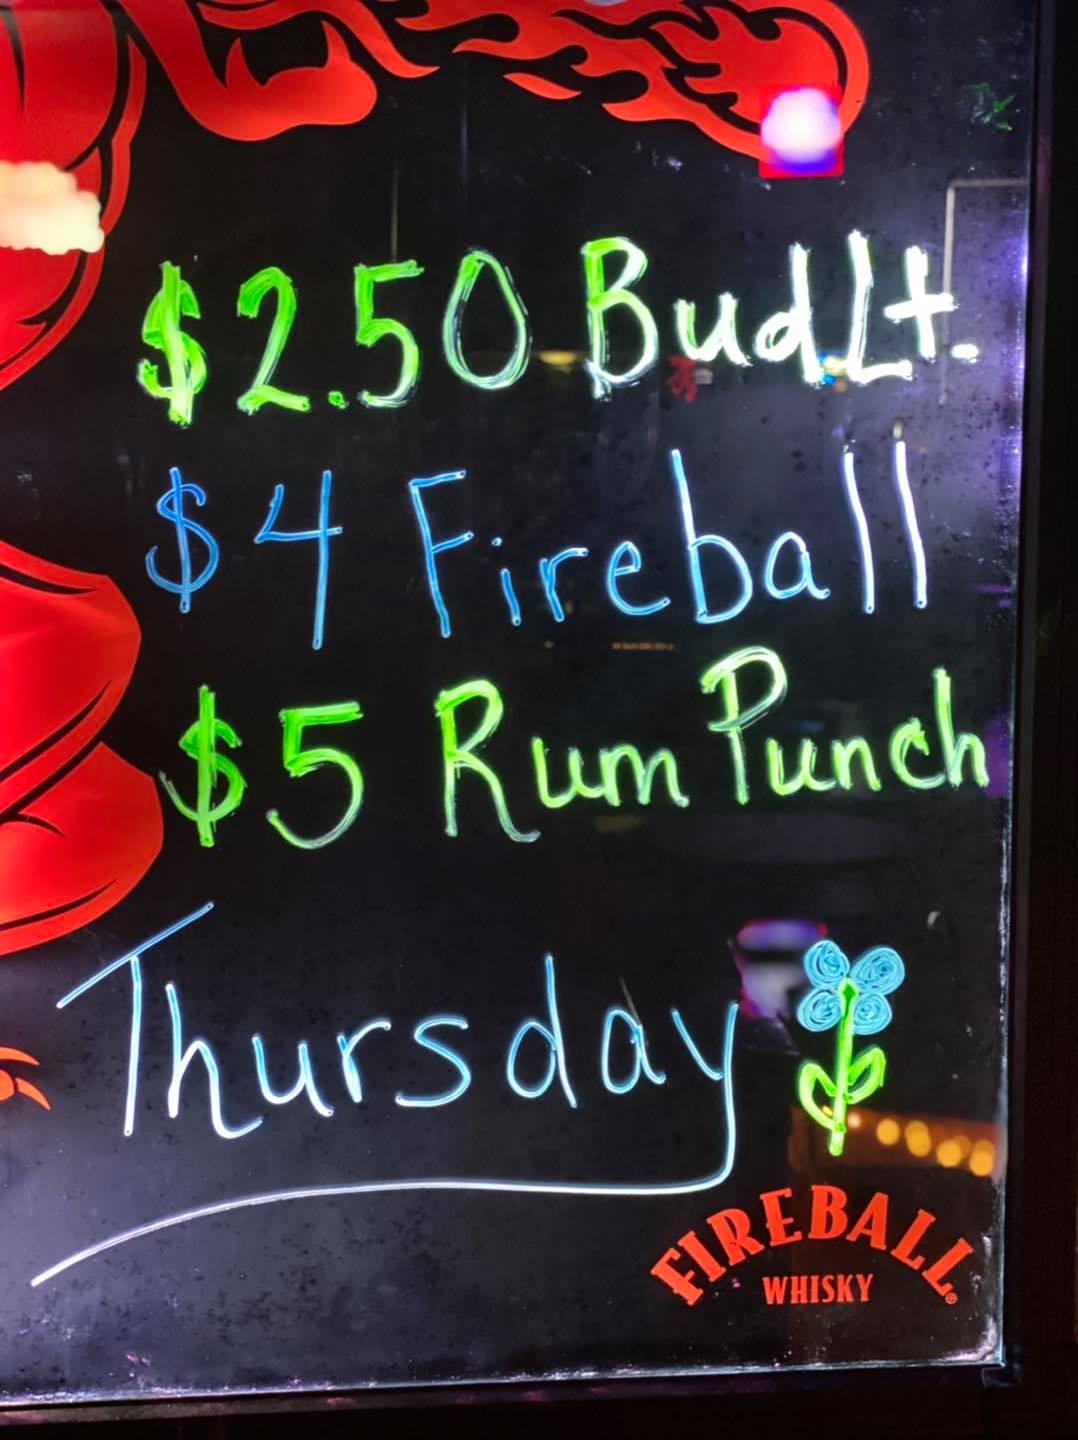 $2.50 Bud Lt.
$4 Fireball
$5 Rum Punch
Thursday
FIREBALL®
WHISKY